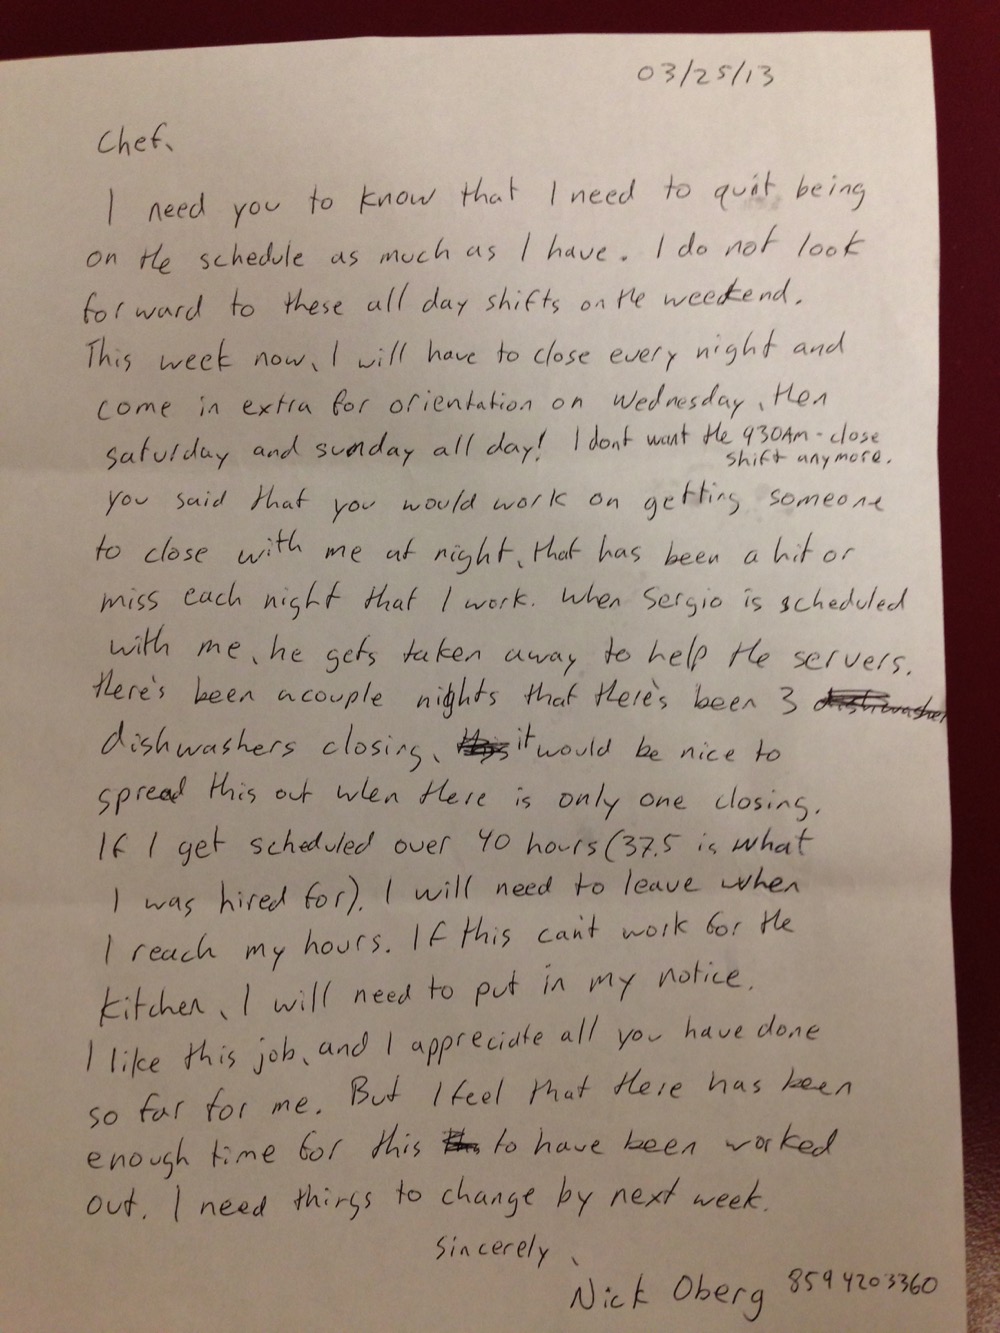 03/25/13
Chef,
I need you to know that I need to quit being
on the schedule as much as I have. I do not look
forward to these all day shifts on the weekend.
This week now, I will have to close every night and
come in extra for orientation on Wednesday, then
saturday and sunday all day! I dont want the 930AM - close
shift anymore.
you said that you would work on getting someone
to close with me at night, that has been a hit or
miss each night that I work. When Sergio is scheduled
with me, he gets taken away to help the servers.
there's been a couple nights that there's been 3 dishwasher
dishwashers closing, it would be nice to
spread this out when there is only one closing.
If I get scheduled over 40 hours (37.5 is what
I was hired for), I will need to leave when
I reach my hours. If this can't work for the
kitchen, I will need to put in my notice.
I like this job, and I appreciate all you have done
so far for me. But I feel that there has been
enough time for this to have been worked
out. I need things to change by next week.
Sincerely,
Nick Oberg 859 4203360